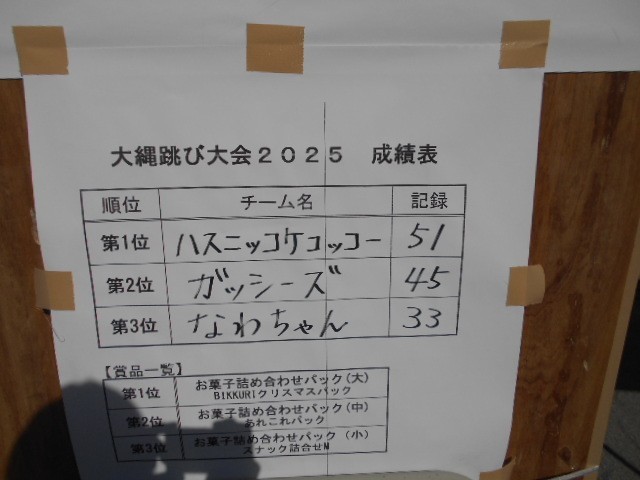 大縄跳び大会2025 成績表
順位 チーム名 記録
第1位 ハスニッコケコッコー 51
第2位 ガッシーズ 45
第3位 なわちゃん 33
【賞品一覧】
第1位 お菓子詰め合わせパック(大)
BIKKURIクリスマスパック
第2位 お菓子詰め合わせパック(中)
あれこれパック
第3位 お菓子詰め合わせパック(小)
スナック詰合せM